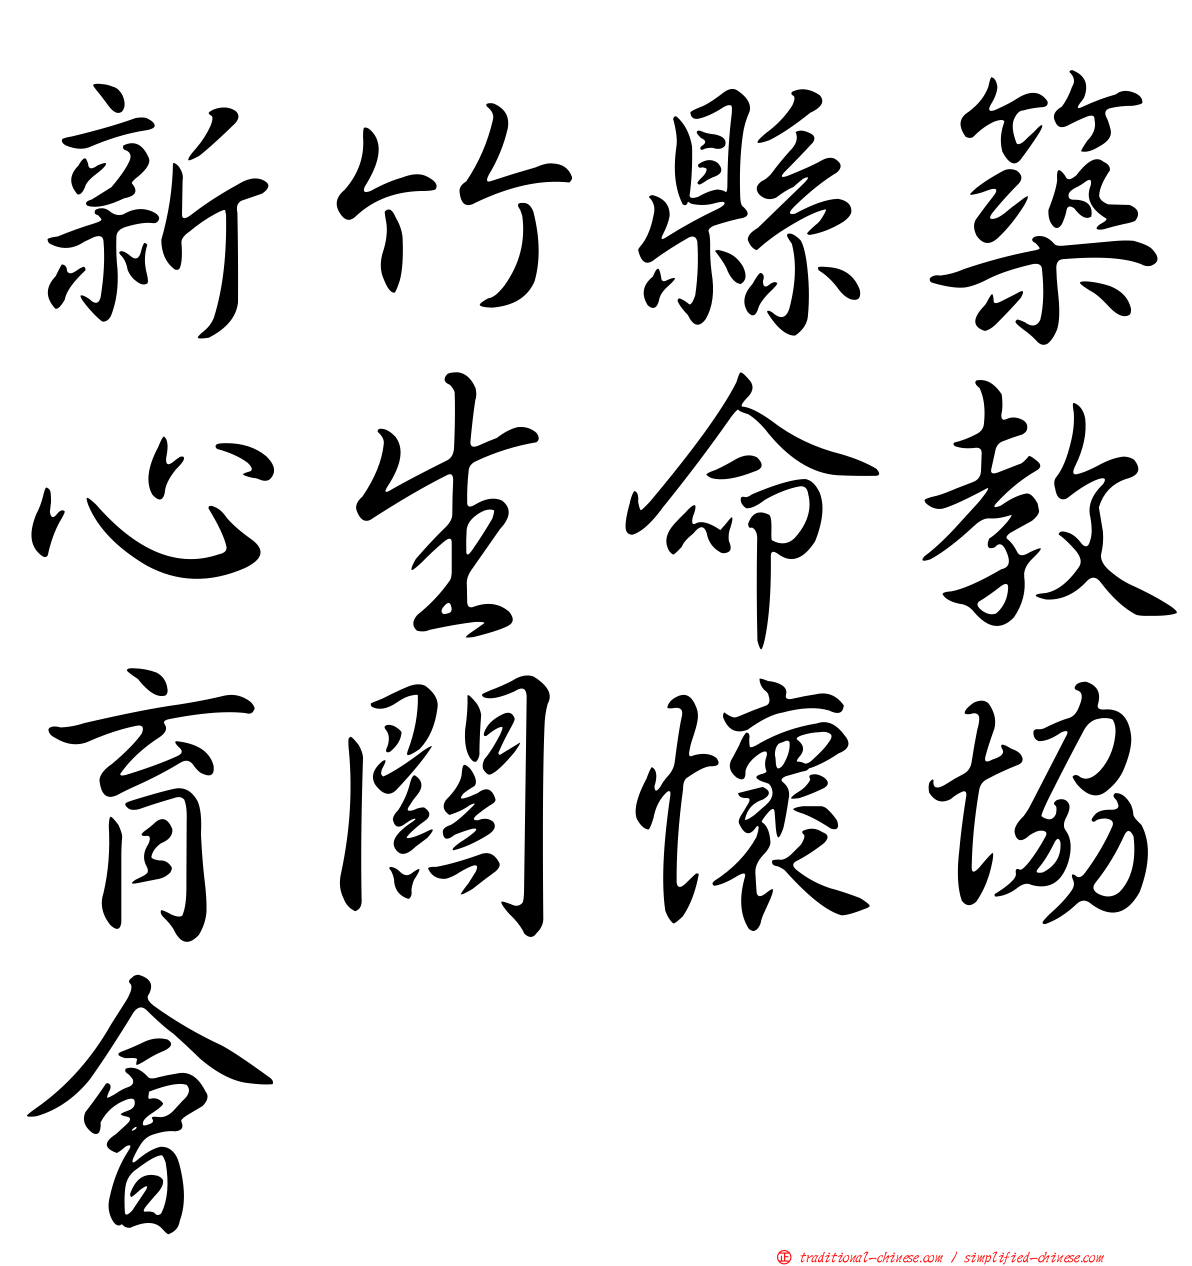 新竹縣築
心生命教
育關懷協
會
正 traditional-chinese.com / simplified-chinese.com